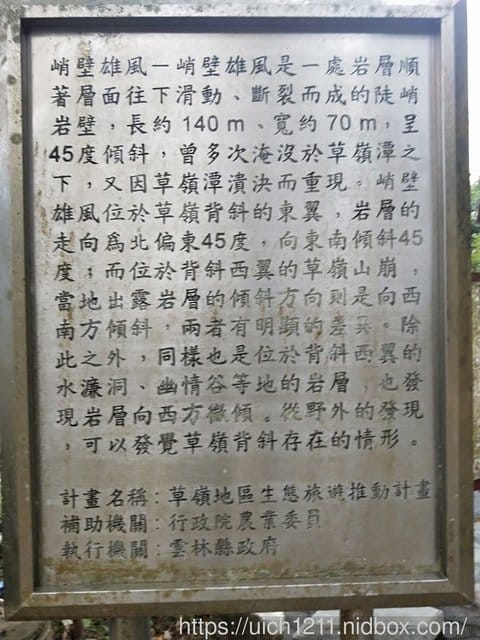 峭壁雄風－峭壁雄風是一處岩層順
著層面往下滑動、斷裂而成的陡峭
岩壁，長約140m、寬約70m，呈
45度傾斜，曾多次淹沒於草嶺潭之
下，又因草嶺潭潰決而重現。峭壁
雄風位於草嶺背斜的東翼，岩層的
走向為北偏東45度，向東南傾斜45
度；而位於背斜西翼的草嶺山崩，
當地出露岩層的傾斜方向則是向西
南方傾斜，兩者有明顯的差異。除
此之外，同樣也是位於背斜西翼的
水濂洞、幽情谷等地的岩層，也發
現岩層向西方微傾。從野外的發現
，可以發覺草嶺背斜存在的情形。
計畫名稱：草嶺地區生態旅遊推動計畫
補助機關：行政院農業委員
執行機關：雲林縣政府
https://uich1211.nidbox.com/